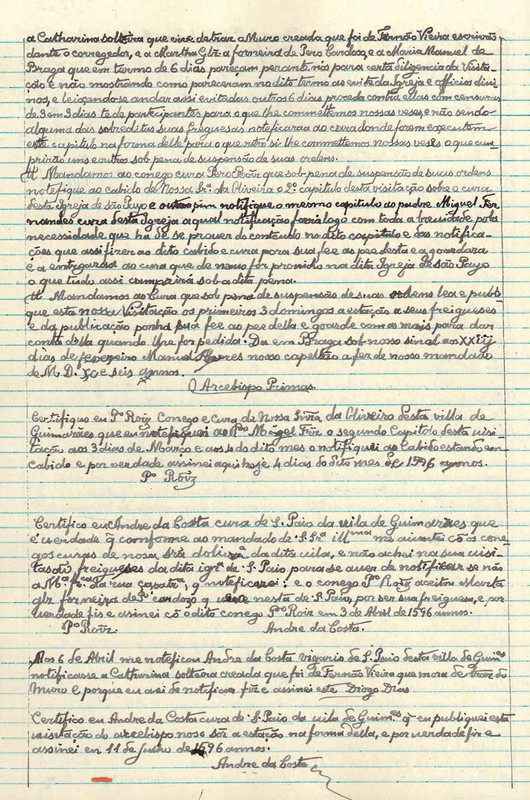 a Catharina solteira que vive detraz a Muro creada que foi de Fernão Vieira escrivão
dante o corregedor, e a Martha Glz a forneira de Pero Cardoso, e a Maria Manuel de
Braga que em termo de 6 dias pareçam perante nós para certa diligencia da Visita-
ção e não mostrando como pareceram no dito termo as evite da Igreja e officios divi-
nos, e leixando-se andar assi evitadas outros 6 dias proceda contra ellas com censuras
de 3 em 3 dias te de participantes para o que lhe commettemos nossas vezes e não sendo
alguma das sobreditas suas freguesas notificará ao cura donde forem executem
este capitulo na forma delle para o que outro si lhe commettemos nossas vezes o que cum-
prirão uns e outros sob pena de suspensão de suas ordens.
It. Mandamos ao conego curo Pero Roiz que sob pena de suspensão de suas ordens
notefique ao cabido de Nossa Snra da Oliveira o 2º capitulo desta visitação sobre o cura
desta Igreja de São Payo e outrossim notifique o mesmo capitulo ao padre Miguel Fer-
nandes cura desta Igreja a qual notificação fará logo com toda a brevidade pola
necessidade que ha de se prover do contendo no dito capitulo e das notifica-
ções que assi fizer ao dito cabido e cura porá sua fee ao pee desta e a goardará
e a entregará ao cura que de novo for provido na dita Igreja de São Payo
o que tudo assi comprirá sob a dita pena.
It. Mandamos ao Cura que sob pena de suspensão de suas ordens lea e publi-
que esta nossa Visitação os primeiros 3 domingos a estação a seus freigueses
e da publicação ponha sua fee ao pee della e goarde com as mais para dar
conta della quando lhe for pedida. Da em Braga sob nosso sinal aos XXiij
dias de fevereiro Manuel Alvares nosso capellão a fez de nosso mandado
de M. D. XC e seis annos.
O Arcebispo Primas.
Certefiquo eu Pº Roiz Conego e Cura de Nossa Snra da Oliveira desta villa de
Guimarães que eu notefiquei ao Pe Miguel Frz o segundo Capitolo desta visi-
tação aos 3 dias de Março e aos 4 do dito mes o notifiquei ao Cabido estando em
cabido e por verdade assinei aqui hoje 4 dias do dito mes de 1596 annos.
Pº Roiz
Certifico eu Andre da Costa cura de S. Paio da vila de Guimarães que
é verdade q conforme ao mandado de S. Sª Illma me ajuntei cõ os cone-
gos curas de nosa srª dolivrª da dita vila, e não achei na sua visi-
tasão freigueses da dita igrª de S. Paio para se aver de notificar se não
a Mª da rua çapatrª, q notificarei: e o conego Pº Roiz aceitou Marta
glz forneira de Pº cardozo q vive nesta de S. Paio, por ser sua freiguesa, e por
verdade fis e asinei cõ o dito conego Pº Roiz em 3 de Abril de 1596 annos.
Pº Roiz. Andre da Costa.
Aos 6 de Abril me notificou Andre da Costa vigario de S. Paio desta villa de Guimes
notificasse a Catharina solteira creada que foi de Fernão Vieira que mora de traz do
Muro e porque eu asi de notificar fiz e assinei este Diogo Dias
Certifico eu Andre da Costa cura de S. Paio da vila de Guimes q eu publiquei esta
visitação do arcebispo noso sõr a estação na forma della, e por verdade fiz e
assinei em 11 de Junho de 1596 annos.
Andre da Costa